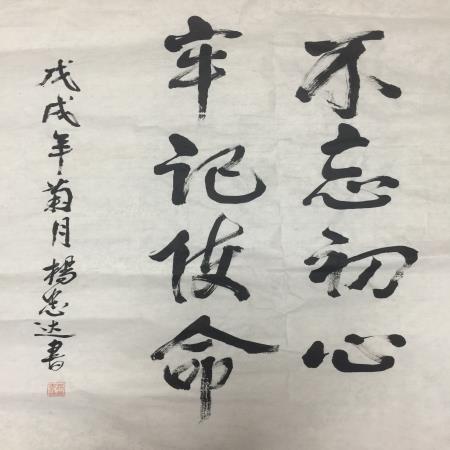 不忘初心
牢记使命
戊戌年菊月杨忠达书